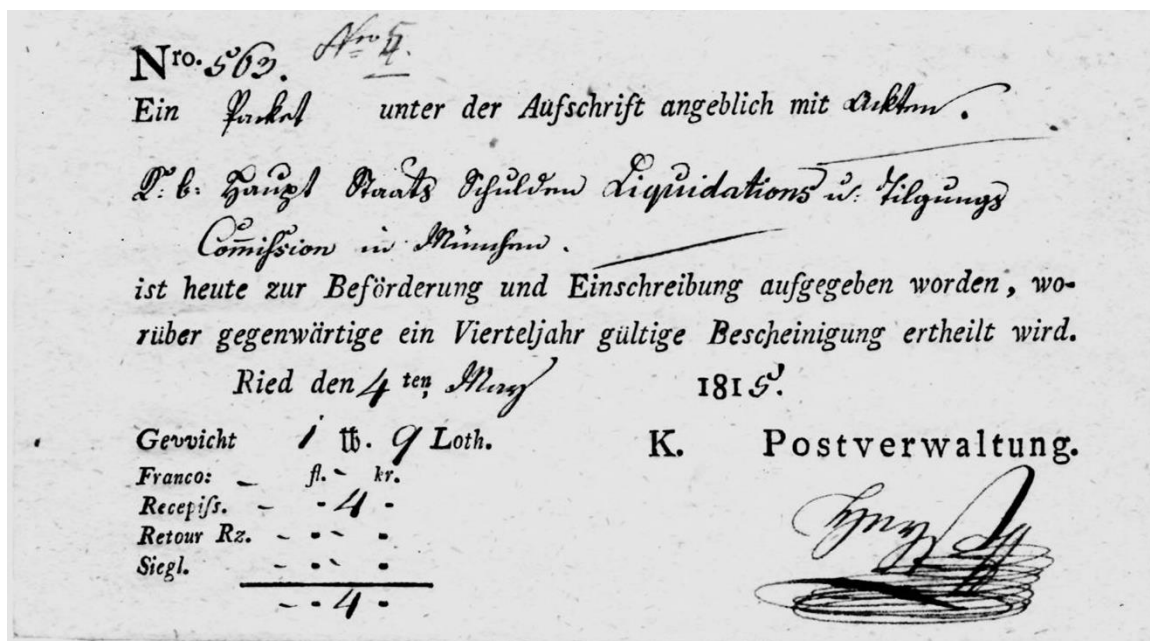 Nro. 563. Nro 4.
Ein Packet unter der Aufschrift angeblich mit Ackten.
K: b: Haupt Staats Schulden Liquidations u: Tilgungs
Com̅ißion in München.
ist heute zur Beförderung und Einschreibung aufgegeben worden, wo-
rüber gegenwärtige ein Vierteljahr gültige Bescheinigung ertheilt wird.
Ried den 4 ten May 1815.
Gewicht 1 ℔. 9 Loth. K. Postverwaltung.
Franco: - fl. - kr.
Recepiſs. - - 4 -
Retour Rz. - - - -
Siegl. - - -
- - 4 -